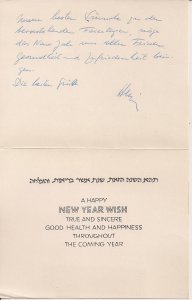 Unsere besten Wünsche zu den
bevorstehenden Feiertagen, möge
das Neue Jahr uns allen Frieden
Gesundheit und Zufriedenheit brin-
gen.
Die besten Grüße
תהא השנה הזאת, שנת אושר בריאות, והצלחה
A HAPPY
NEW YEAR WISH
TRUE AND SINCERE
GOOD HEALTH AND HAPPINESS
THROUGHOUT
THE COMING YEAR